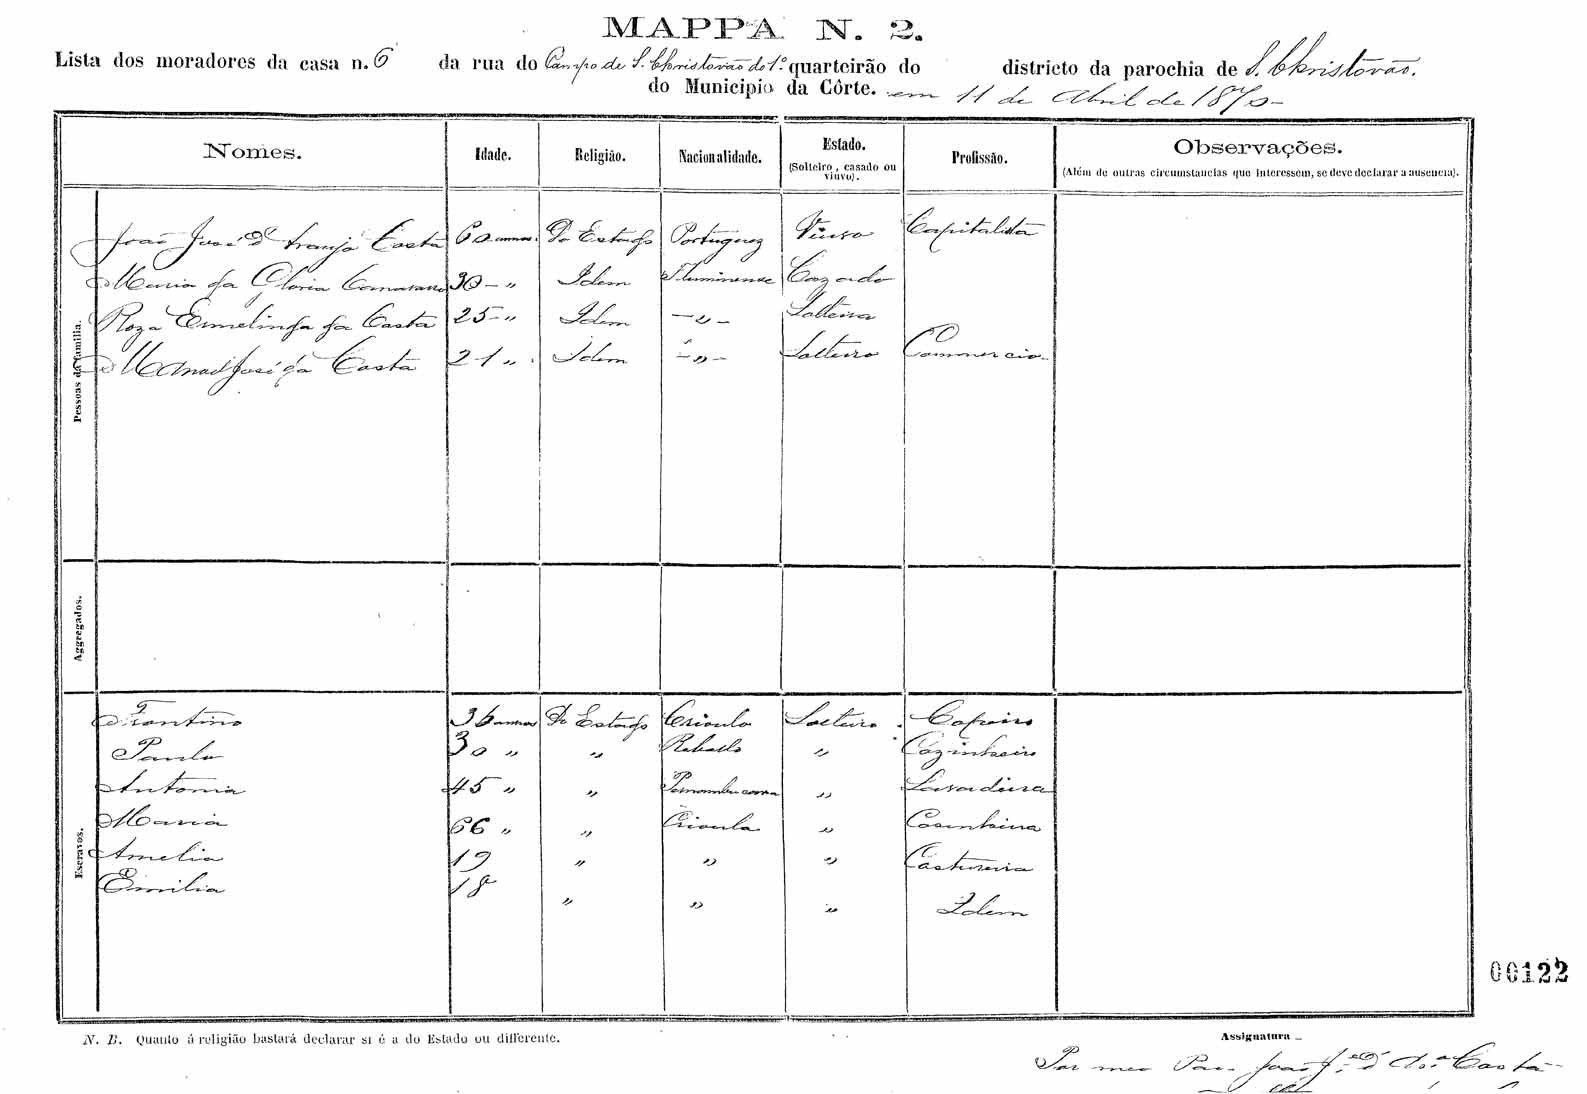 MAPPA N. 2.
Lista dos moradores da casa n. 6 da rua do Campo de S. Christovão do 1.º quarteirão do districto da parochia de S. Christovão.
do Municipio da Côrte. em 11 de Abril de 1870
Nomes. Idade. Religião. Nacionalidade. Estado. (Solteiro, casado ou viuvo). Profissão. Observações. (Além de outras circumstancias que interessem, se deve declarar a ausencia).
Pessoas da familia.
João José d'Araujo Costa 60 annos Do Estado Portuguez Viuvo Capitalista
Maria da Gloria 30 - " Idem Fluminense Cazado
Roza Ermelinda da Costa 25 - " Idem - " - Solteira
Manoel José da Costa 21 " Idem - " - Solteiro Commercio
Aggregados.
Escravos.
Frontino 36 annos Do Estado Crioulo Solteiro Copeiro
Paulo 30 " " " Cozinheiro
Antonia 45 " " Pernambucana " Lavadeira
Maria 66 " " Crioula " Cosinheira
Amelia 19 " " " Costureira
Emilia 18 " " " Idem
00122
N. B. Quanto á religião bastará declarar si é a do Estado ou differente.
Assignatura
Por meu Pai João J.é d' Ar.º Costa